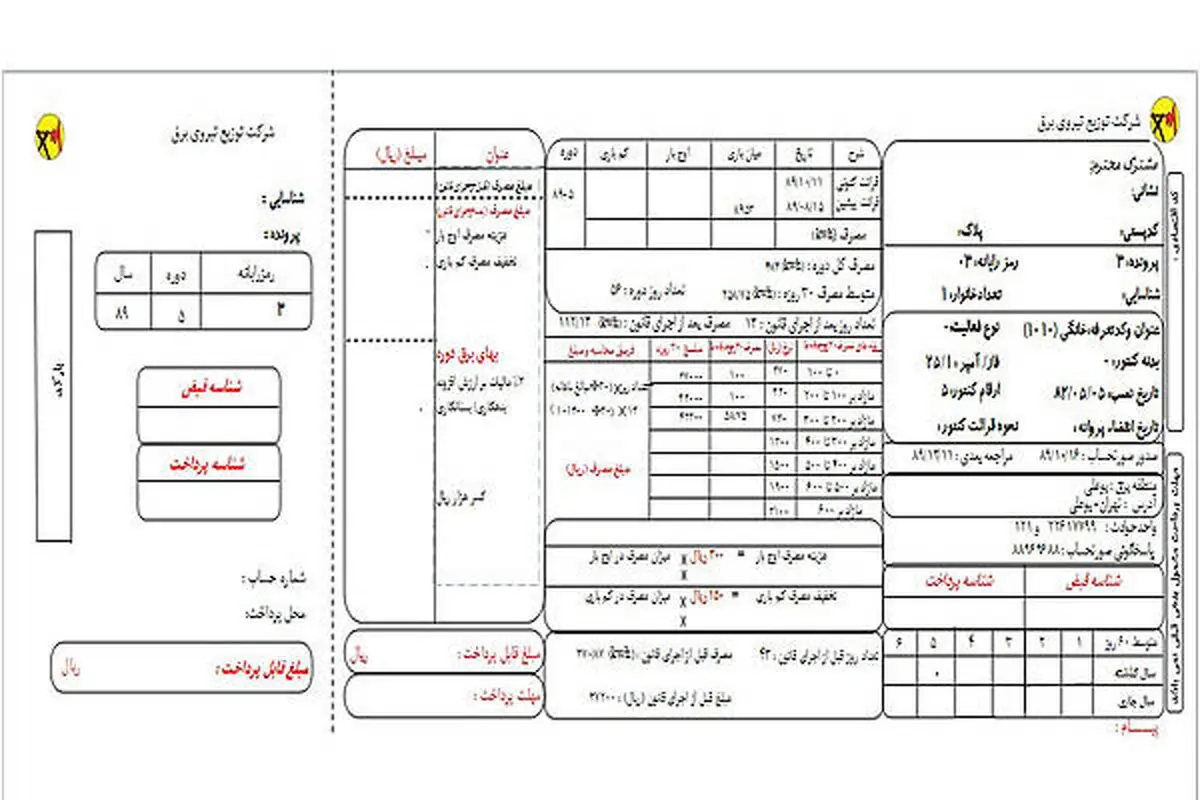 شرکت توزیع نیروی برق
مشترک محترم:
نشانی:
کدپستی: پلاک:
پرونده: ۳ رمز رایانه: ۰۳
شناسایی: تعداد خانوار: 1
عنوان و کد تعرفه: خانگی (1010) نوع فعالیت: -
بدنه کنتور: - فاز/آمپر: 25/1
تاریخ نصب: ۸۲/۰۵/۰۵ ارقام کنتور: ۵
تاریخ انقضاء پروانه: نحوه قرائت کنتور:
صدور صورتحساب: ۸۹/۱۰/۱۶ مراجعه بعدی: ۸۹/۱۲/۱۱
منطقه برق: بوعلی
آدرس: تهران-بوعلی
واحد حوادث: ۲۲۶۱۷۶۹۹ و ۱۲۱
پاسخگوئی صورتحساب: ۸۸۹۶۹۶۸۸
شناسه قبض شناسه پرداخت
متوسط ۶۰ روز ۱ ۲ ۳ ۴ ۵ ۶
سال گذشته ۰
سال جاری
پیـــام:
کد اقتصادی:
شرح تاریخ میان باری اوج بار کم باری دوره
قرائت کنونی ۸۹/۱۰/۱۱ ۸۹-۵
قرائت پیشین ۸۹/۰۸/۱۵
مصرف (kwh)
مصرف کل دوره: (kwh)
متوسط مصرف ۳۰ روزه: (kwh) تعداد روز دوره: ۵۶
تعداد روز بعد از اجرای قانون: ۱۳ مصرف بعد از اجرای قانون: (kwh)
نرخ (ریال)
۰ تا ۱۰۰ ۲۷۰ ۱۰۰ ۲۷۰۰۰
مازاد بر ۱۰۰ تا ۲۰۰ ۱۰۰
مازاد بر ۲۰۰ تا ۳۰۰
مازاد بر ۳۰۰ تا ۴۰۰
مازاد بر ۴۰۰ تا ۵۰۰ ۱۵۰۰
مازاد بر ۵۰۰ تا ۶۰۰ ۱۹۰۰
مازاد بر ۶۰۰ ۲۱۰۰
مبلغ مصرف (ریال)
هزینه مصرف اوج بار = ۳۰۰ ریال X میزان مصرف در اوج بار
X
تخفیف مصرف کم باری = ۱۵۰ ریال X میزان مصرف در کم باری
X
تعداد روز قبل از اجرای قانون: ۴۳ مصرف قبل از اجرای قانون: (kwh)
مبلغ قبل از اجرای قانون (ریال):
عنوان مبلغ (ریال)
هزینه مصرف اوج بار
تخفیف مصرف کم باری
بهای برق دوره
٪۳ مالیات بر ارزش افزوده
بدهکاری/بستانکاری
کسر هزار ریال
مبلغ قابل پرداخت: ریال
مهلت پرداخت:
شرکت توزیع نیروی برق
شناسایی:
پرونده:
رمز رایانه دوره سال
۳ ۵ ۸۹
بارکد
شناسه قبض
شناسه پرداخت
شماره حساب:
محل پرداخت:
مبلغ قابل پرداخت: ریال